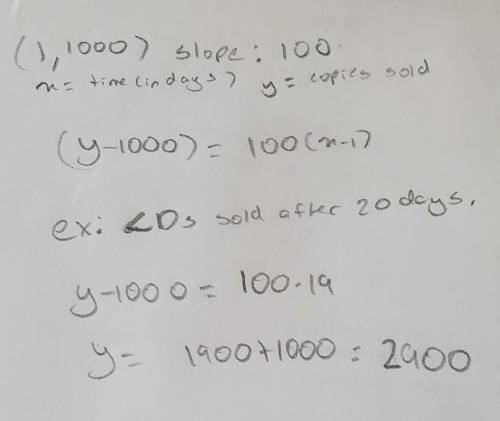 (1,1000) slope: 100.
x= time(in days) y= copies sold
(y-1000) = 100(x-1)
ex: CDs sold after 20 days.
y-1000 = 100·19
y= 1900+1000 = 2900